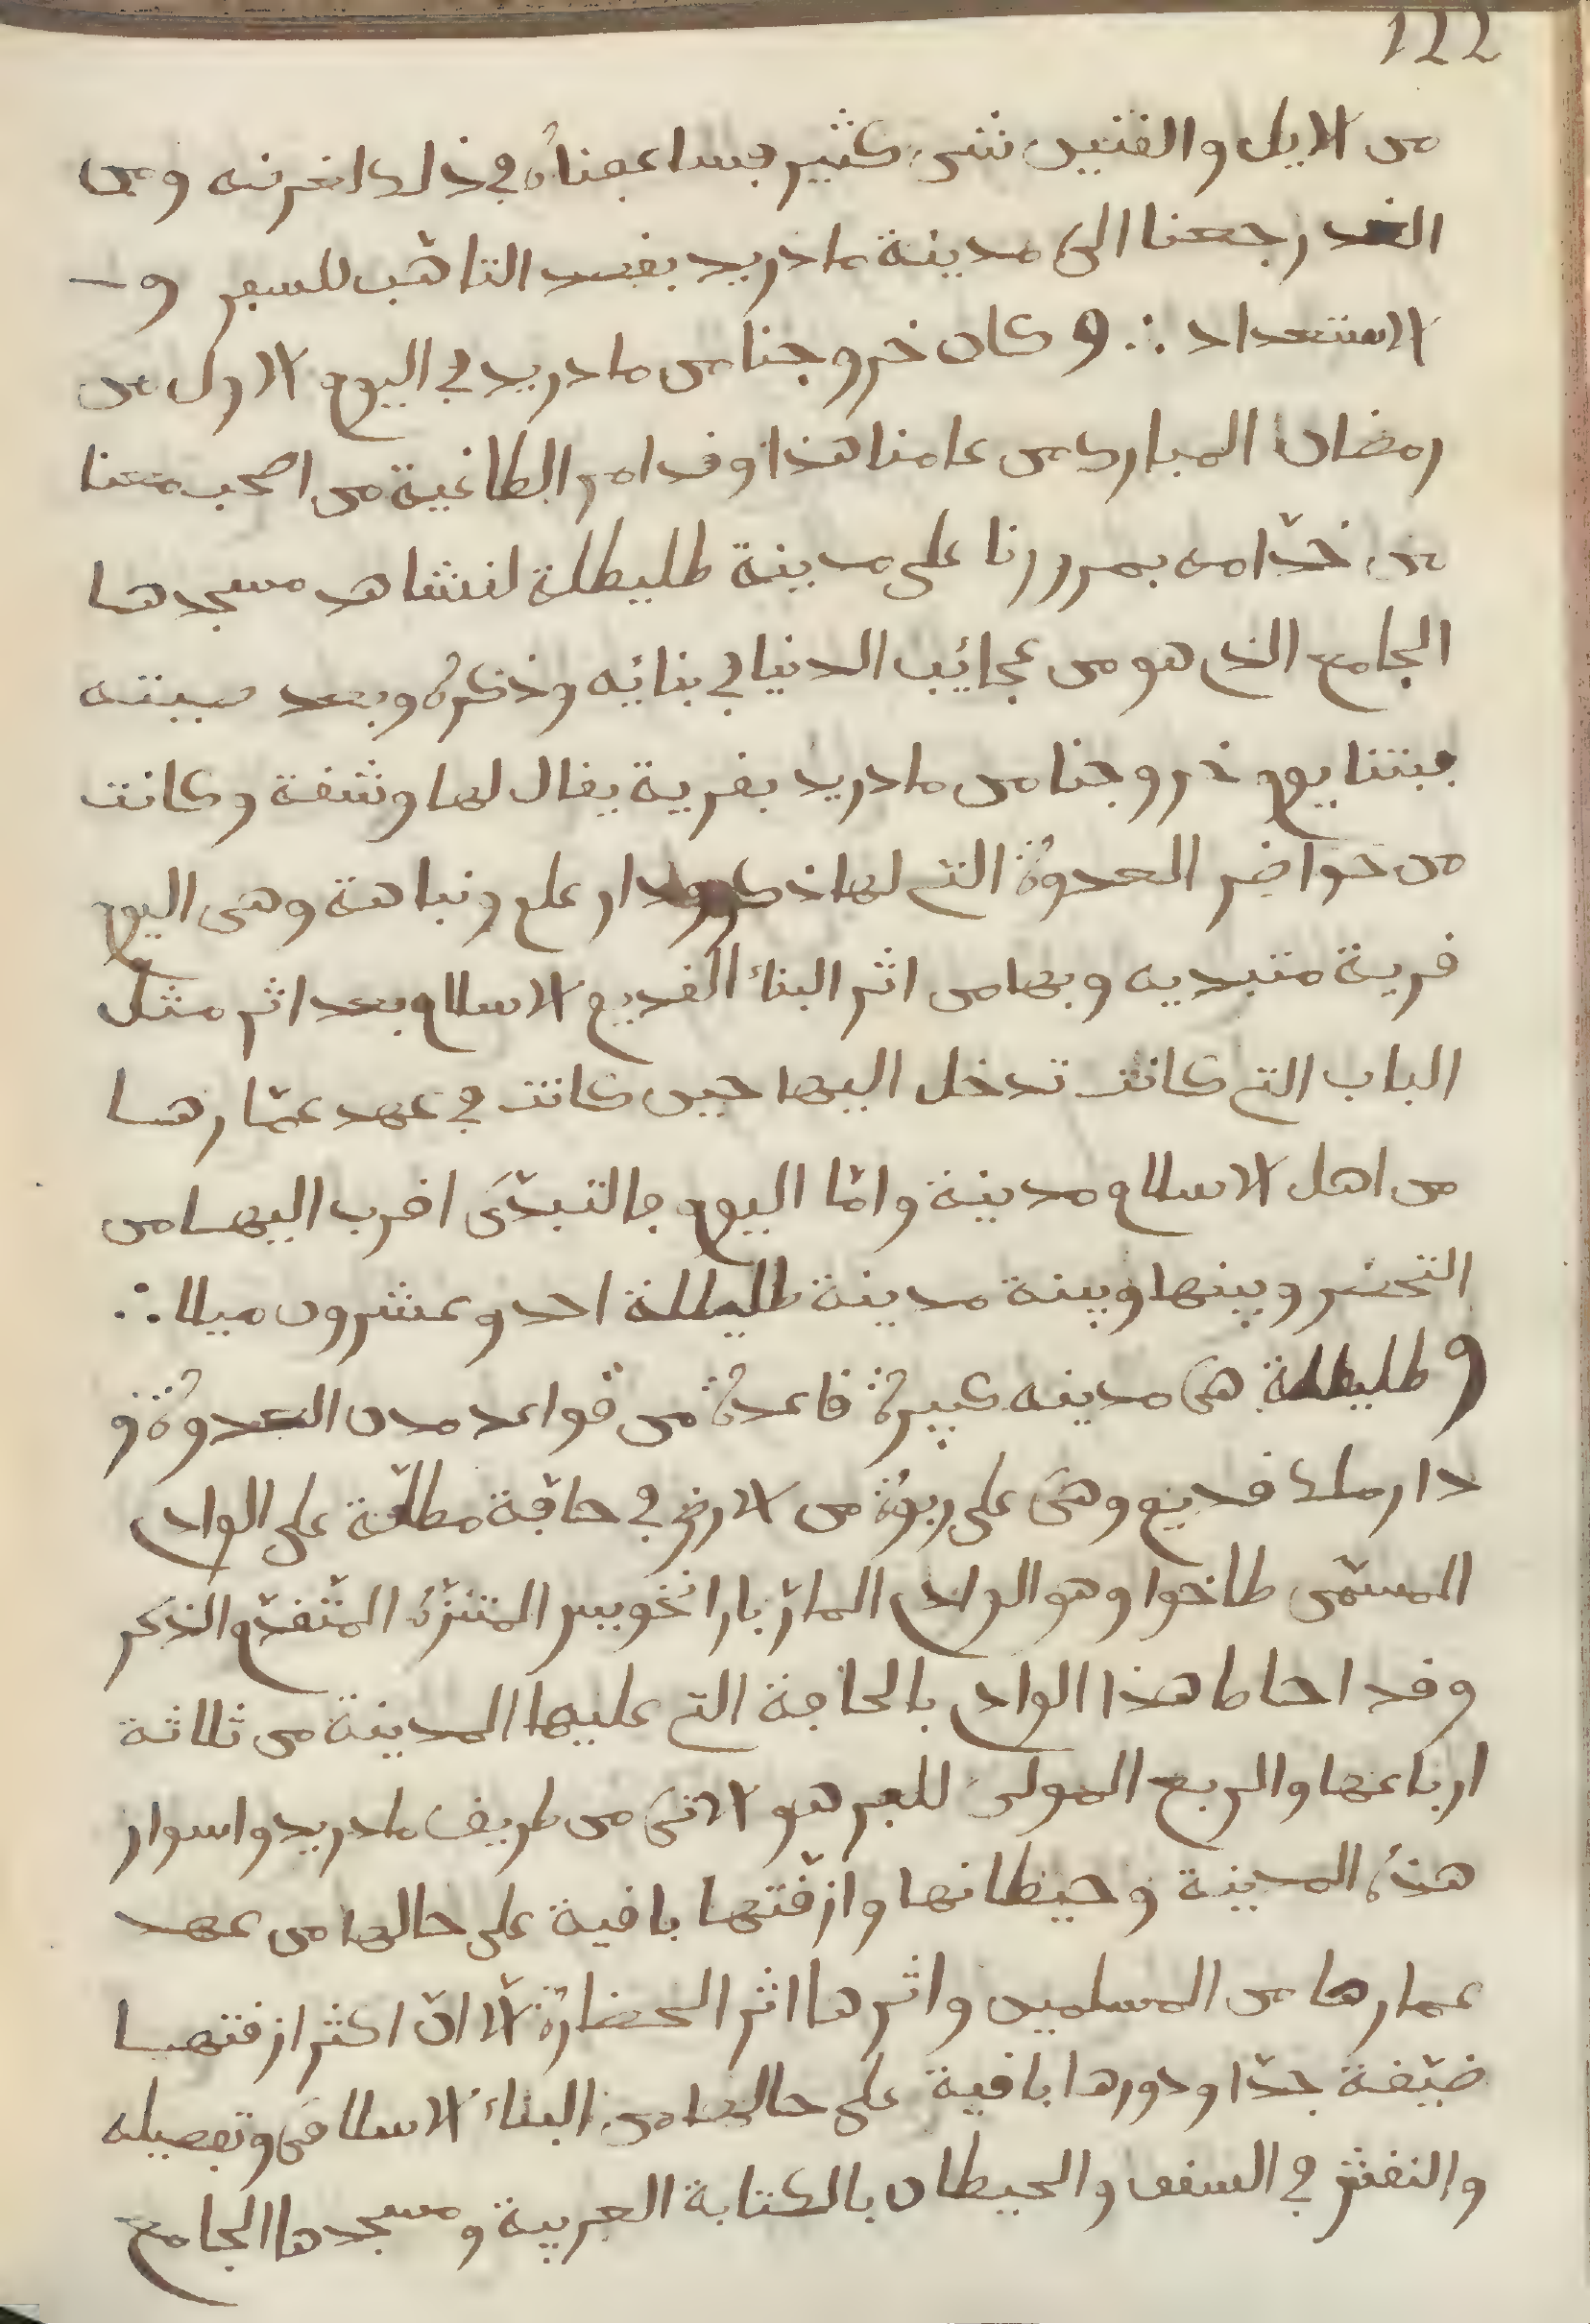 122
من الايل والقنيين شيء كثير فساعفناه في ذلك لغرضه ومن
الغد رجعنا الى مدينة مادريد بقصد التاهّب للسفر و
الاستعداد ∴ وكان خروجنا من مادريد في اليوم الاول من
رمضان المبارك من عامنا هذا وقد امر الطاغية من اصحب معنا
من خدّامه بمرورنا على مدينة طليطلة لنشاهد مسجدها
الجامع الذي هو من عجائب الدنيا في بنائه وذكره وبعد صيته
فبتنا يوم خروجنا من مادريد بقرية يقال لها وشقة وكانت
من حواضر العدوة التي لها ذكر ودار علم ونباهة وهي اليوم
قرية متبديه وبها من اثر البناء القديم الاسلام بعد اثر مثل
الباب التي كانت تدخل اليها حين كانت في عهد عمّارها
من اهل الاسلام مدينة وامّا اليوم فالتبدّي اقرب اليها من
التحضر وبينها وبينة مدينة طليطلة احد وعشرون ميلا ∴
وطليطلة هي مدينه كبيرة قاعدة من قواعد مدن العدوة و
دار ملك قديم وهي على ربوة من الارض في حافّة مطلّة على الواد
المسمّى طاخوا وهو الواد المارّ بارانخويس المتنزّه المتقدّم الذكر
وقد احاط هذا الواد بالحافة التي عليها المدينة من ثلاثة
ارباعها والربع الموالي للبر هو الاتي من طريق مادريد واسوار
هذه المدينة وحيطانها وازقّتها باقية على حالها من عهد
عمارها من المسلمين واثرها اثر الحضارة الّا انّ اكثر ازقتها
ضيّقة جدّا ودورها باقية على حالها من البناء الاسلامي وتفصيله
والنقش في السقف والحيطان بالكتابة العربية ومسجدها الجامع